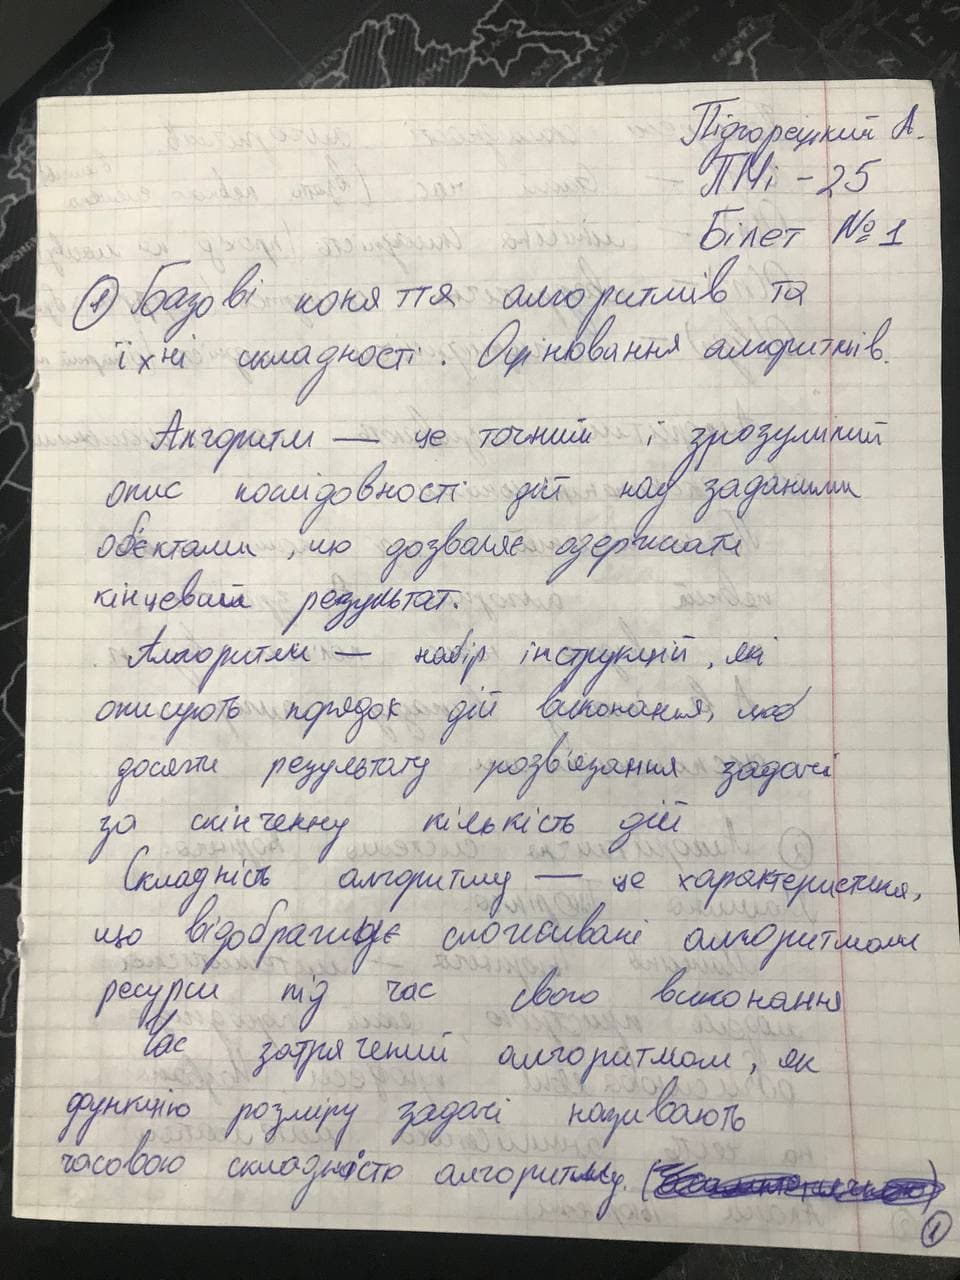 Підгорецький А.
ПМі - 25
Білет № 1
① Базові поняття алгоритмів та
їхні складності. Оцінювання алгоритмів.
Алгоритм — це точний і зрозумілий
опис послідовності дій над заданими
об'єктами, що дозволяє одержати
кінцевий результат.
Алгоритм — набір інструкцій, які
описують порядок дій виконання, щоб
досягти результату розв'язання задачі
за скінченну кількість дій
Складність алгоритму — це характеристика,
що відображає споживані алгоритмом
ресурси під час свого виконання
Час затрачений алгоритмом, як
функцію розміру задачі називають
часовою складністю алгоритму.
①